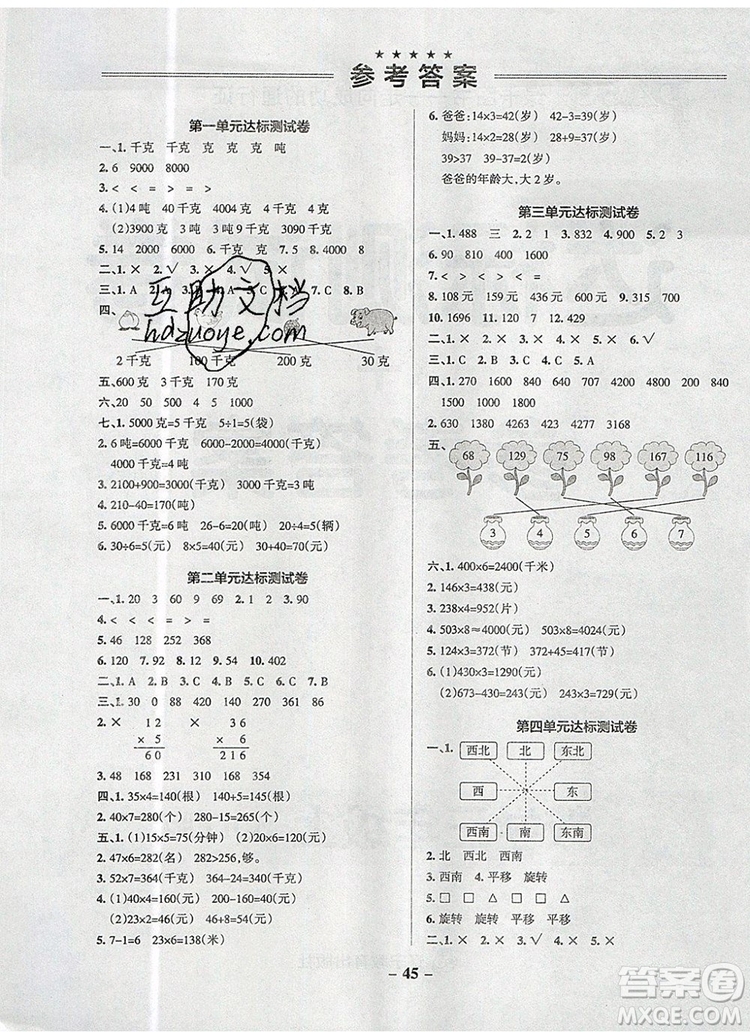 ★★★★★
参考答案
第一单元达标测试卷
一、1. 千克 千克 克 克 克 吨
2. 6 9000 8000
3. < < = > <
4. (1)4吨 4700千克 4004克 4千克
(2)3900克 9吨 3吨 3吨9千克
5. 14 2000 6. 克 千克 7. 5 8. 4000 8
二、1. × 2. √ 3. × 4. √ 5. ×
三、1. A 2. A 3. 4. 5. C 6. A 7. C 8. B
四、
2千克 100千克 200克 30克
五、600克 3千克 170克
六、20 50 500 4 5 1000
七、1. 5000克=5千克 5÷1=5(袋)
2. 6吨=6000千克 6000-2000=4000(千克)
4000千克=4吨
3. 2100+900=3000(千克) 3000千克=3吨
4. 210-40=170(吨)
5. 6000千克=6吨 26-6=20(吨) 20÷4=5(辆)
6. 30÷6=5(吨) 8×5=40(吨) 40-30=10(吨)
第二单元达标测试卷
一、1. 20 3 60 9 69 2. 1 2 3. 90
4. < < < = > =
5. 46 128 252 368
6. 120 7. 92 8. 12 9. 84 10. 402
二、1. A 2. B 3. C 4. A 5. C 6. B 7. B
三、1. 30 0 88 420 240 130 361 86
2. × ×
12 36
× 5 × 6
60 216
3. 48 168 231 310 357 564
四、1. 35×4=140(根) 140÷5=28(根)
2. 40×7=280(个) 280-15=265(个)
五、1. (1)15×5=75(分钟) (2)20×6=120(元)
2. 47×6=282(名) 282>250,够。
3. 52×7=364(千克) 364-24=340(千克)
4. (1)40×4=160(元) 160-20=140(元)
(2)23×2=46(元) 46+48=94(元)
5. 7-1=6 23×6=138(米)
6. 爸爸:14×3=42(岁) 42-3=39(岁)
妈妈:14×2=28(岁) 28+9=37(岁)
39>37 39-37=2(岁)
爸爸的年龄大,大2岁。
第三单元达标测试卷
一、1. 488 三 2. 2 1 3. 832 4. 400 5. 2 3
6. 90 810 90 1600
7. < < > < < =
8. 108元 159元 436元 200元 9. 315 700
10. 1696 11. 120 7 12. 429
二、1. × 2. × 3. × 4. × 5. × 6. √
三、1. C 2. B 3. C 4. C 5. A
四、1. 640 540 2000 4200 4000 4200 1800
1500 1000 1800
2. 630 1380 4263 423 1288 3668
五、
68 129 75 98 167 116
3 4 5 6 7
六、1. 400×6=2400(千米)
2. 146×3=438(元)
3. 238×4=952(片)
4. 503×8≈4000(元) 503×8=4024(元)
5. 124×3=372(节) 372+45=417(节)
6. (1)430×3=1290(元)
(2)673-430=243(元) 243×3=729(元)
第四单元达标测试卷
一、1. 西北 北 东北
西 东
西南 南 东南
2. 北 西北 西南
3. 西南 4. 平移 旋转
5. □ □ △ □ △
6. 旋转 旋转 平移 平移 旋转
二、1. × 2. √ 3. × 4. × 5. ×
- 45 -
互助文档
hdzuoye.com
答案圈
MXQE.COM